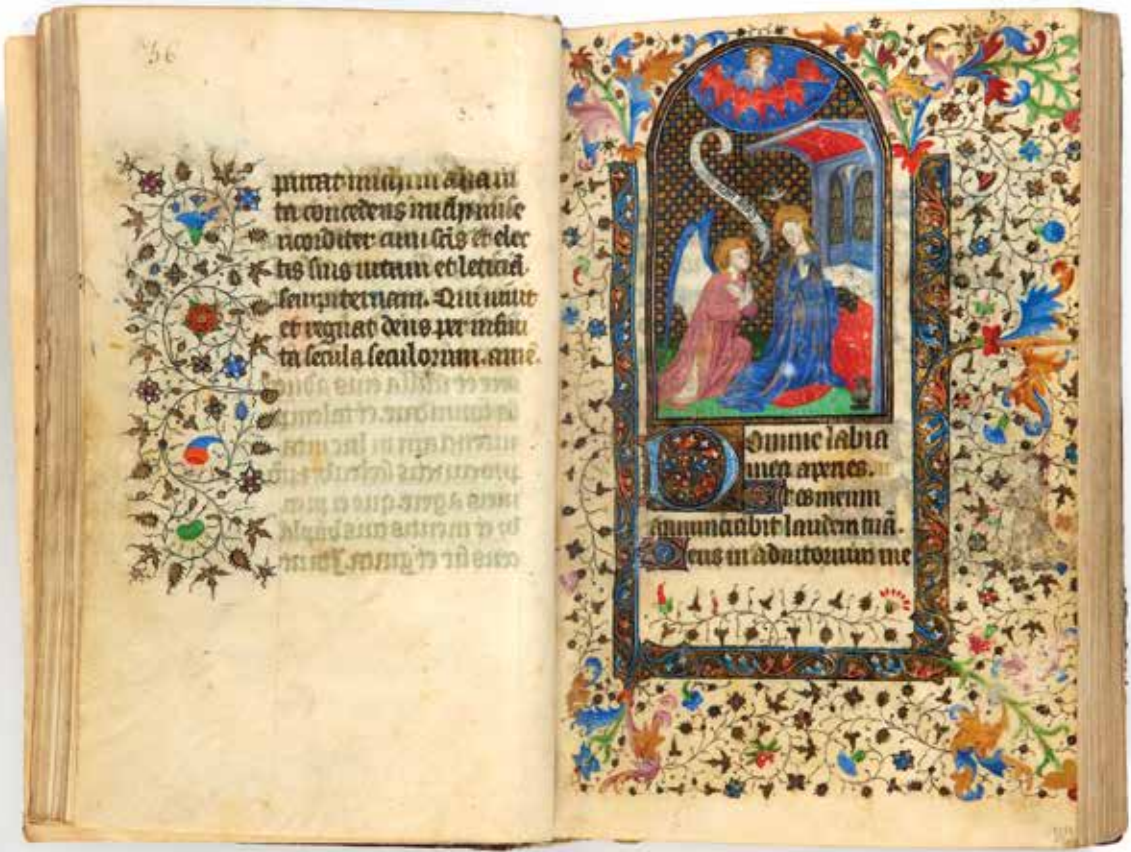 56
michi in alia ui
ta concedens michi mise
ricorditer cum scis et elec
tis suis uitam et leticiã
sempiternam. Qui uiuit
et regnat deus per infini
ta secula seculorum. amẽ.
57
Domine labia
mea aperies.
Et os meum
annunciabit laudem tuã.
Deus in adiutorium me